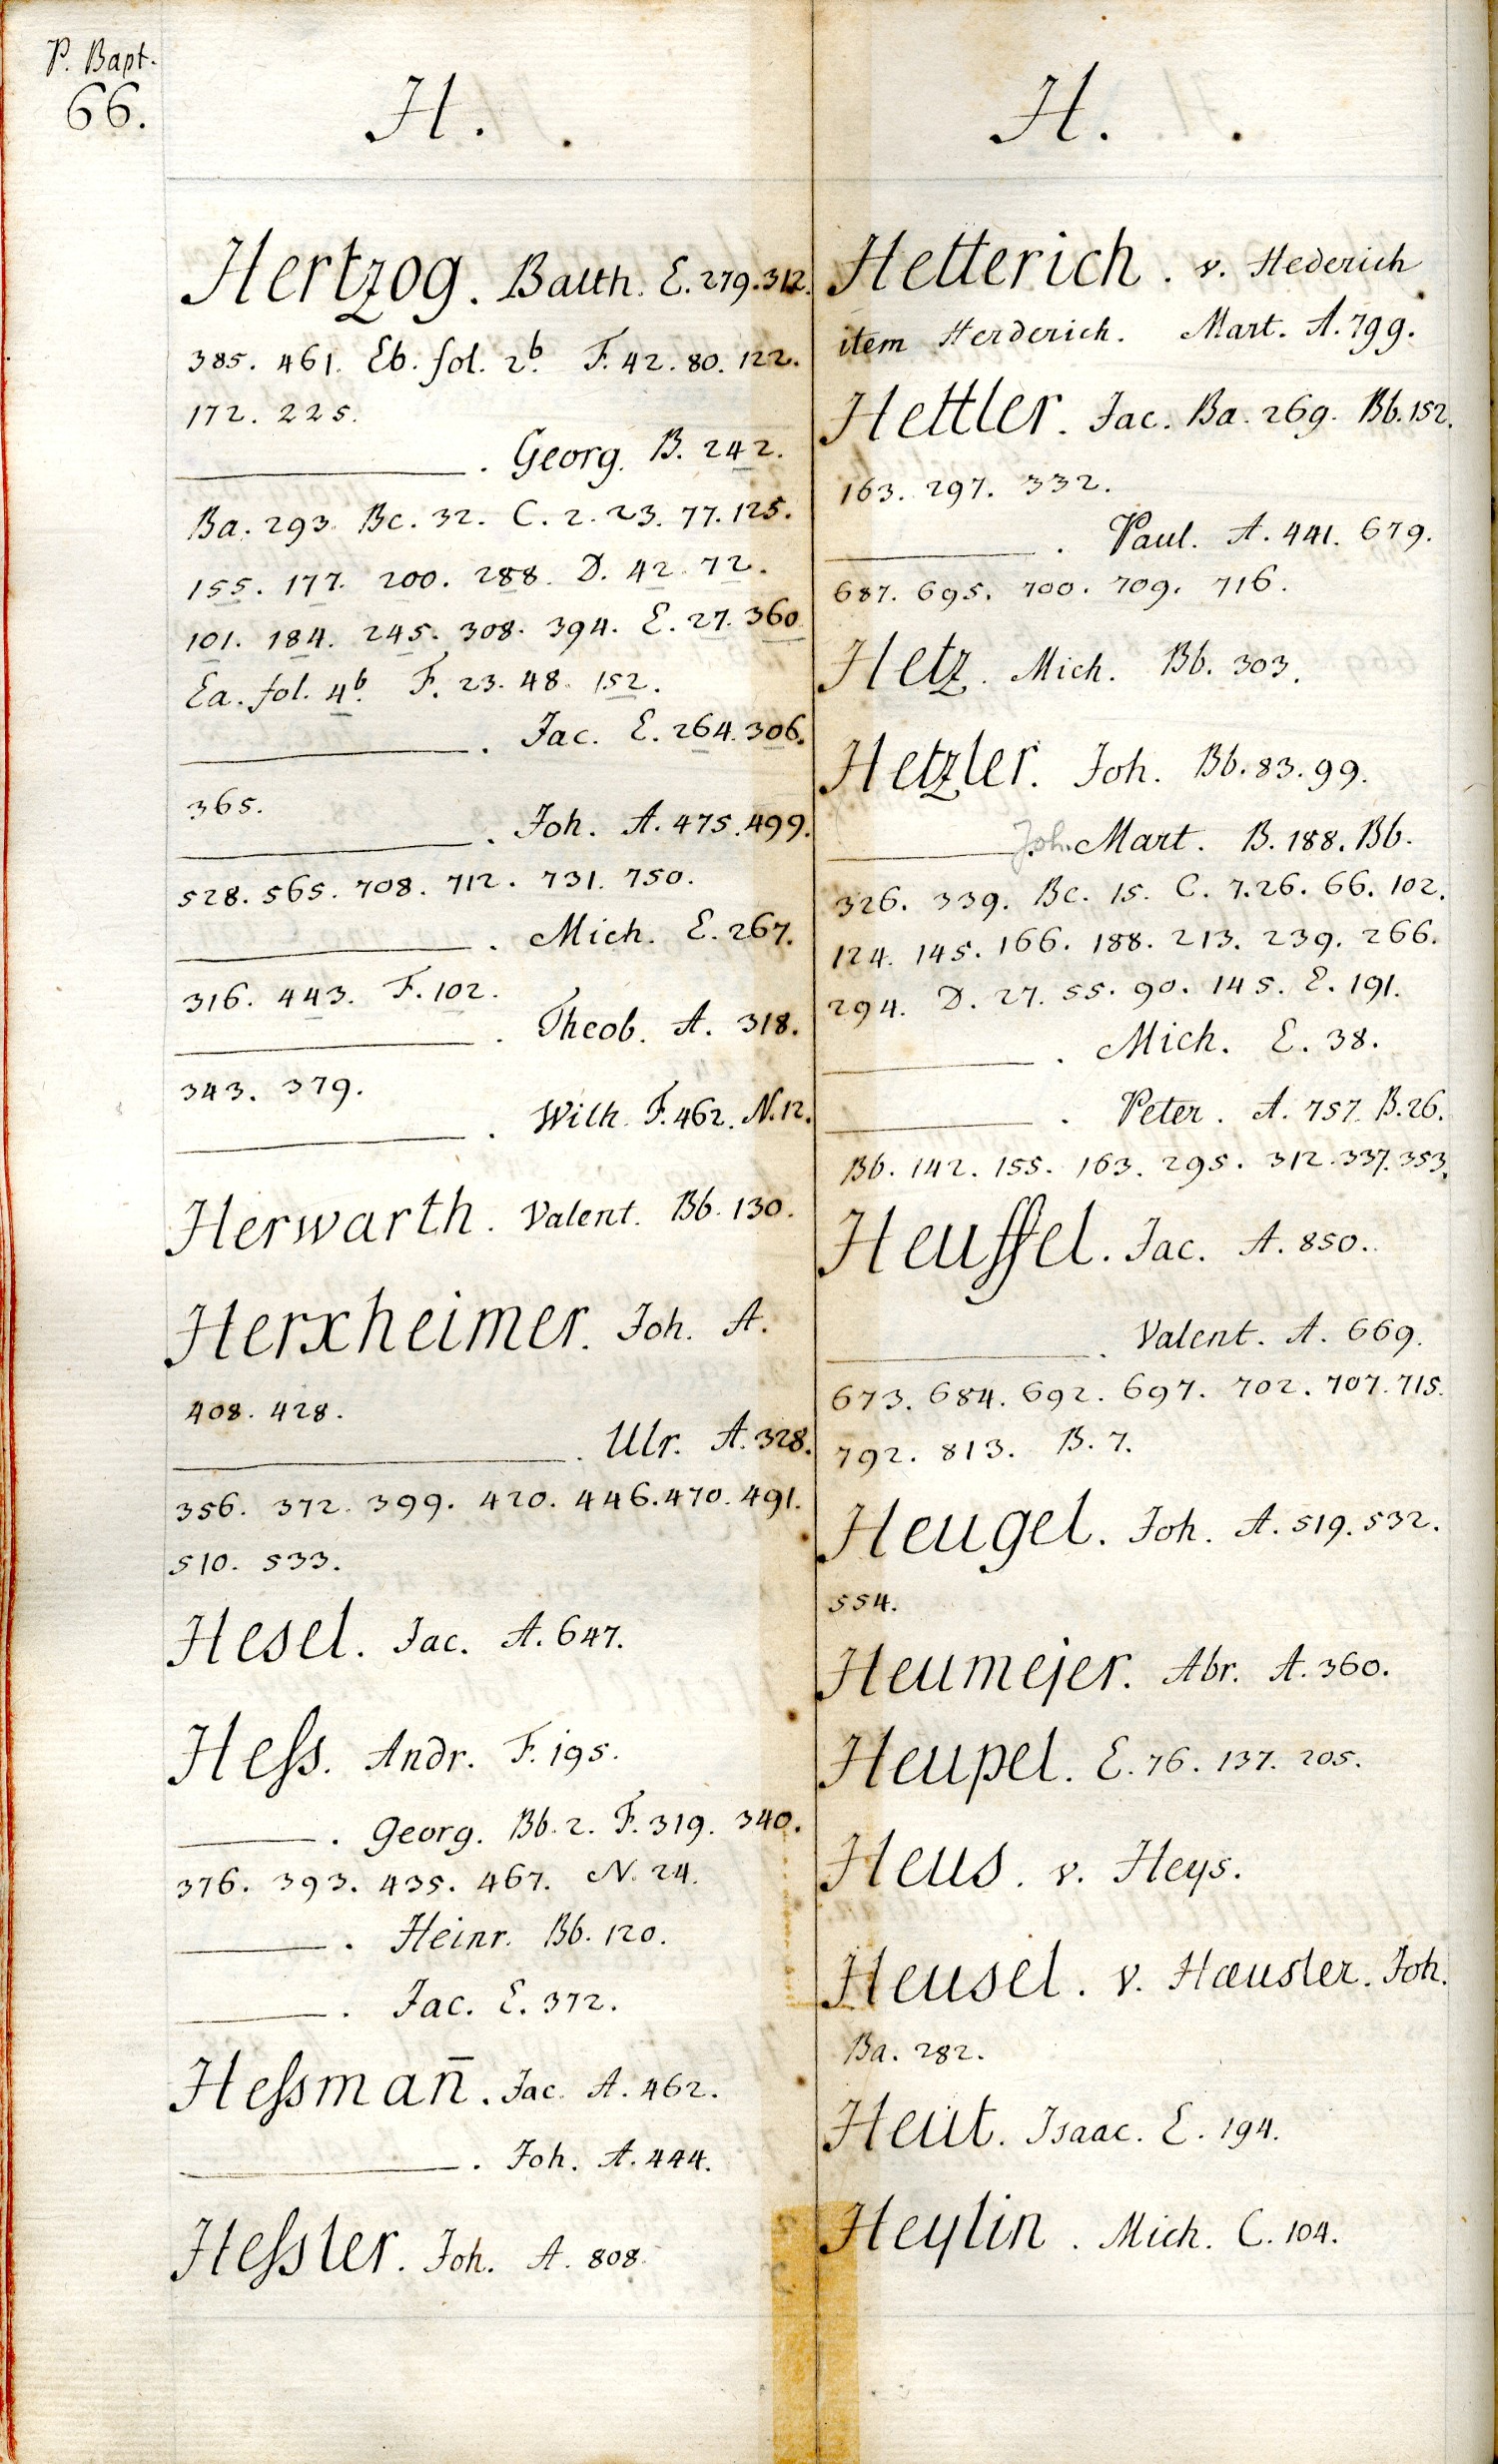 P. Bapt.
66.
H.
Hertzog. Balth. E. 279. 312.
385. 461. Eb. fol. 2b. F. 42. 80. 122.
172. 225.
. Georg. B. 242.
Ba. 293. Bc. 32. C. 2. 23. 77. 125.
155. 177. 200. 288. D. 42. 72.
101. 184. 245. 308. 394. E. 27. 360
Ea. fol. 4b. F. 23. 48. 152.
. Jac. E. 264. 306.
365.
. Joh. A. 475. 499.
528. 565. 708. 712. 731. 750.
. Mich. E. 267.
316. 443. F. 102.
. Theob. A. 318.
343. 379.
. Wilh. F. 462. N. 12.
Herwarth. Valent. Bb. 130.
Herxheimer. Joh. A.
408. 428.
. Ulr. A. 328.
356. 372. 399. 420. 446. 470. 491.
510. 533.
Hesel. Jac. A. 647.
Heſs. Andr. F. 195.
. Georg. Bb. 2. F. 319. 340.
376. 393. 435. 467. N. 24.
. Heinr. Bb. 120.
. Jac. E. 372.
Heſsman̄. Jac. A. 462.
. Joh. A. 444.
Heſsler. Joh. A. 808.
H.
Hetterich. v. Hederich
item Herderich. Mart. A. 799.
Hettler. Jac. Ba. 269. Bb. 152.
163. 297. 332.
. Paul. A. 441. 679.
687. 695. 700. 709. 716.
Hetz. Mich. Bb. 303.
Hetzler. Joh. Bb. 83. 99.
Joh. Mart. B. 188. Bb.
326. 339. Bc. 15. C. 7. 26. 66. 102.
124. 145. 166. 188. 213. 239. 266.
294. D. 27. 55. 90. 145. E. 191.
. Mich. E. 38.
. Peter. A. 757. B. 26.
Bb. 142. 155. 163. 295. 312. 337. 353.
Heuffel. Jac. A. 850.
. Valent. A. 669.
673. 684. 692. 697. 702. 707. 715.
792. 813. B. 7.
Heugel. Joh. A. 519. 532.
554.
Heumejer. Abr. A. 360.
Heupel. E. 76. 137. 205.
Heus. v. Heys.
Heusel. v. Hæusler. Joh.
Ba. 282.
Heut. Isaac. E. 194.
Heylin. Mich. C. 104.